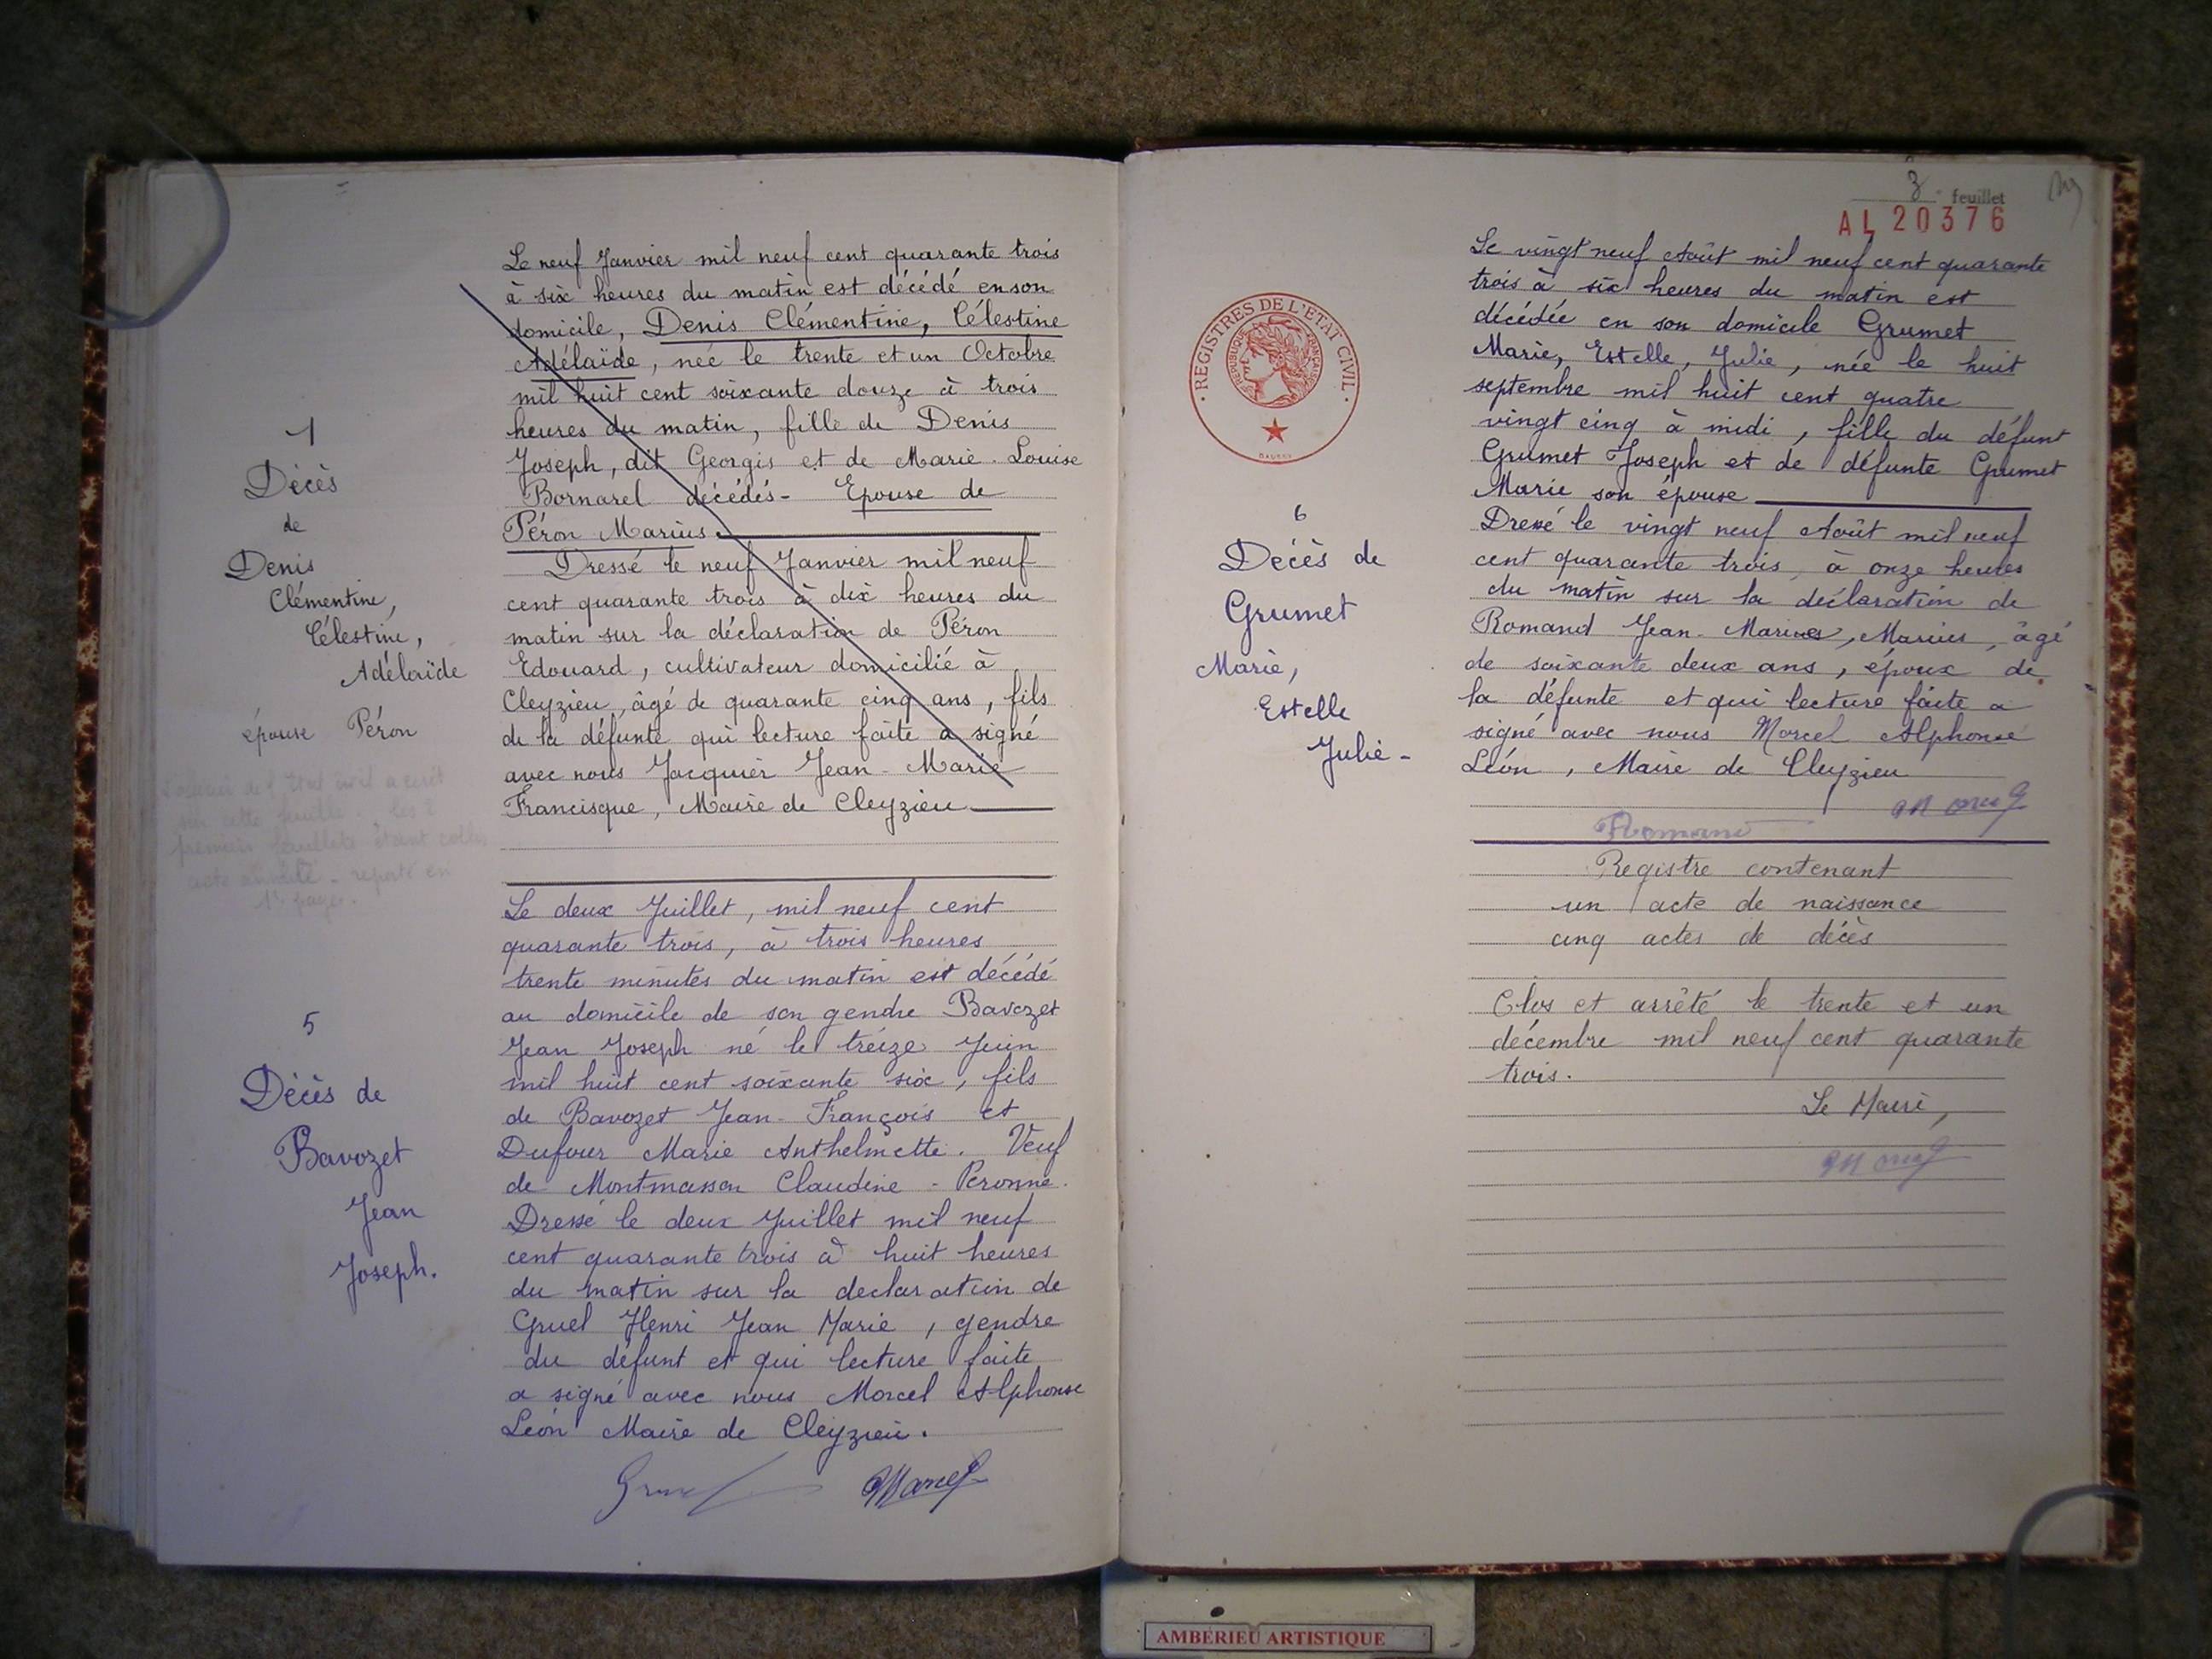 1
Décès
de
Denis
Clémentine,
Célestine,
Adélaïde
épouse Péron
sur cette feuille. les 2
premiers feuillets étant collés
acte annulé - reporté en
1re page.
Le neuf Janvier mil neuf cent quarante trois
à six heures du matin est décédé en son
domicile, Denis Clémentine, Célestine
Adélaïde, née le trente et un Octobre
mil huit cent soixante douze à trois
heures du matin, fille de Denis
Joseph, dit Georgis et de Marie-Louise
Bornarel décédés - Epouse de
Péron Marius.
Dressé le neuf Janvier mil neuf
cent quarante trois à dix heures du
matin sur la déclaration de Péron
Edouard, cultivateur domicilié à
Cleyzieu, âgé de quarante cinq ans, fils
de la défunte qui lecture faite a signé
avec nous Jacquier Jean-Marie
Francisque, Maire de Cleyzieu
5
Décès de
Bavozet
Jean
Joseph.
Le deux Juillet, mil neuf cent
quarante trois, à trois heures
trente minutes du matin est décédé
au domicile de son gendre Bavozet
Jean Joseph né le treize Juin
mil huit cent soixante six, fils
de Bavozet Jean-François et
Dufour Marie Anthelmette. Veuf
de Montmasson Claudine-Peronne.
Dressé le deux Juillet mil neuf
cent quarante trois à huit heures
du matin sur la declaration de
Gruel Henri Jean Marie, gendre
du défunt et qui lecture faite
a signé avec nous Marcel Alphonse
Léon Maire de Cleyzieu.
Gruel Marcel
3e feuillet
AL 20376
REGISTRES DE L'ÉTAT CIVIL
RÉPUBLIQUE FRANÇAISE
6
Décès de
Grumet
Marie,
Estelle
Julie -
Le vingt neuf Août mil neuf cent quarante
trois à six heures du matin est
décédée en son domicile Grumet
Marie, Estelle, Julie, née le huit
septembre mil huit cent quatre
vingt cinq à midi, fille du défunt
Grumet Joseph et de défunte Grumet
Marie son épouse
Dressé le vingt neuf Août mil neuf
cent quarante trois, à onze heures
du matin sur la déclaration de
Romand Jean-Marie, Marius, âgé
de soixante deux ans, époux de
la défunte et qui lecture faite a
signé avec nous Marcel Alphonse
Léon, Maire de Cleyzieu
Marcel
Romand
Registre contenant
un acte de naissance
cinq actes de décès
Clos et arrêté le trente et un
décembre mil neuf cent quarante
trois.
Le Maire,
Marcel
AMBÉRIEU ARTISTIQUE